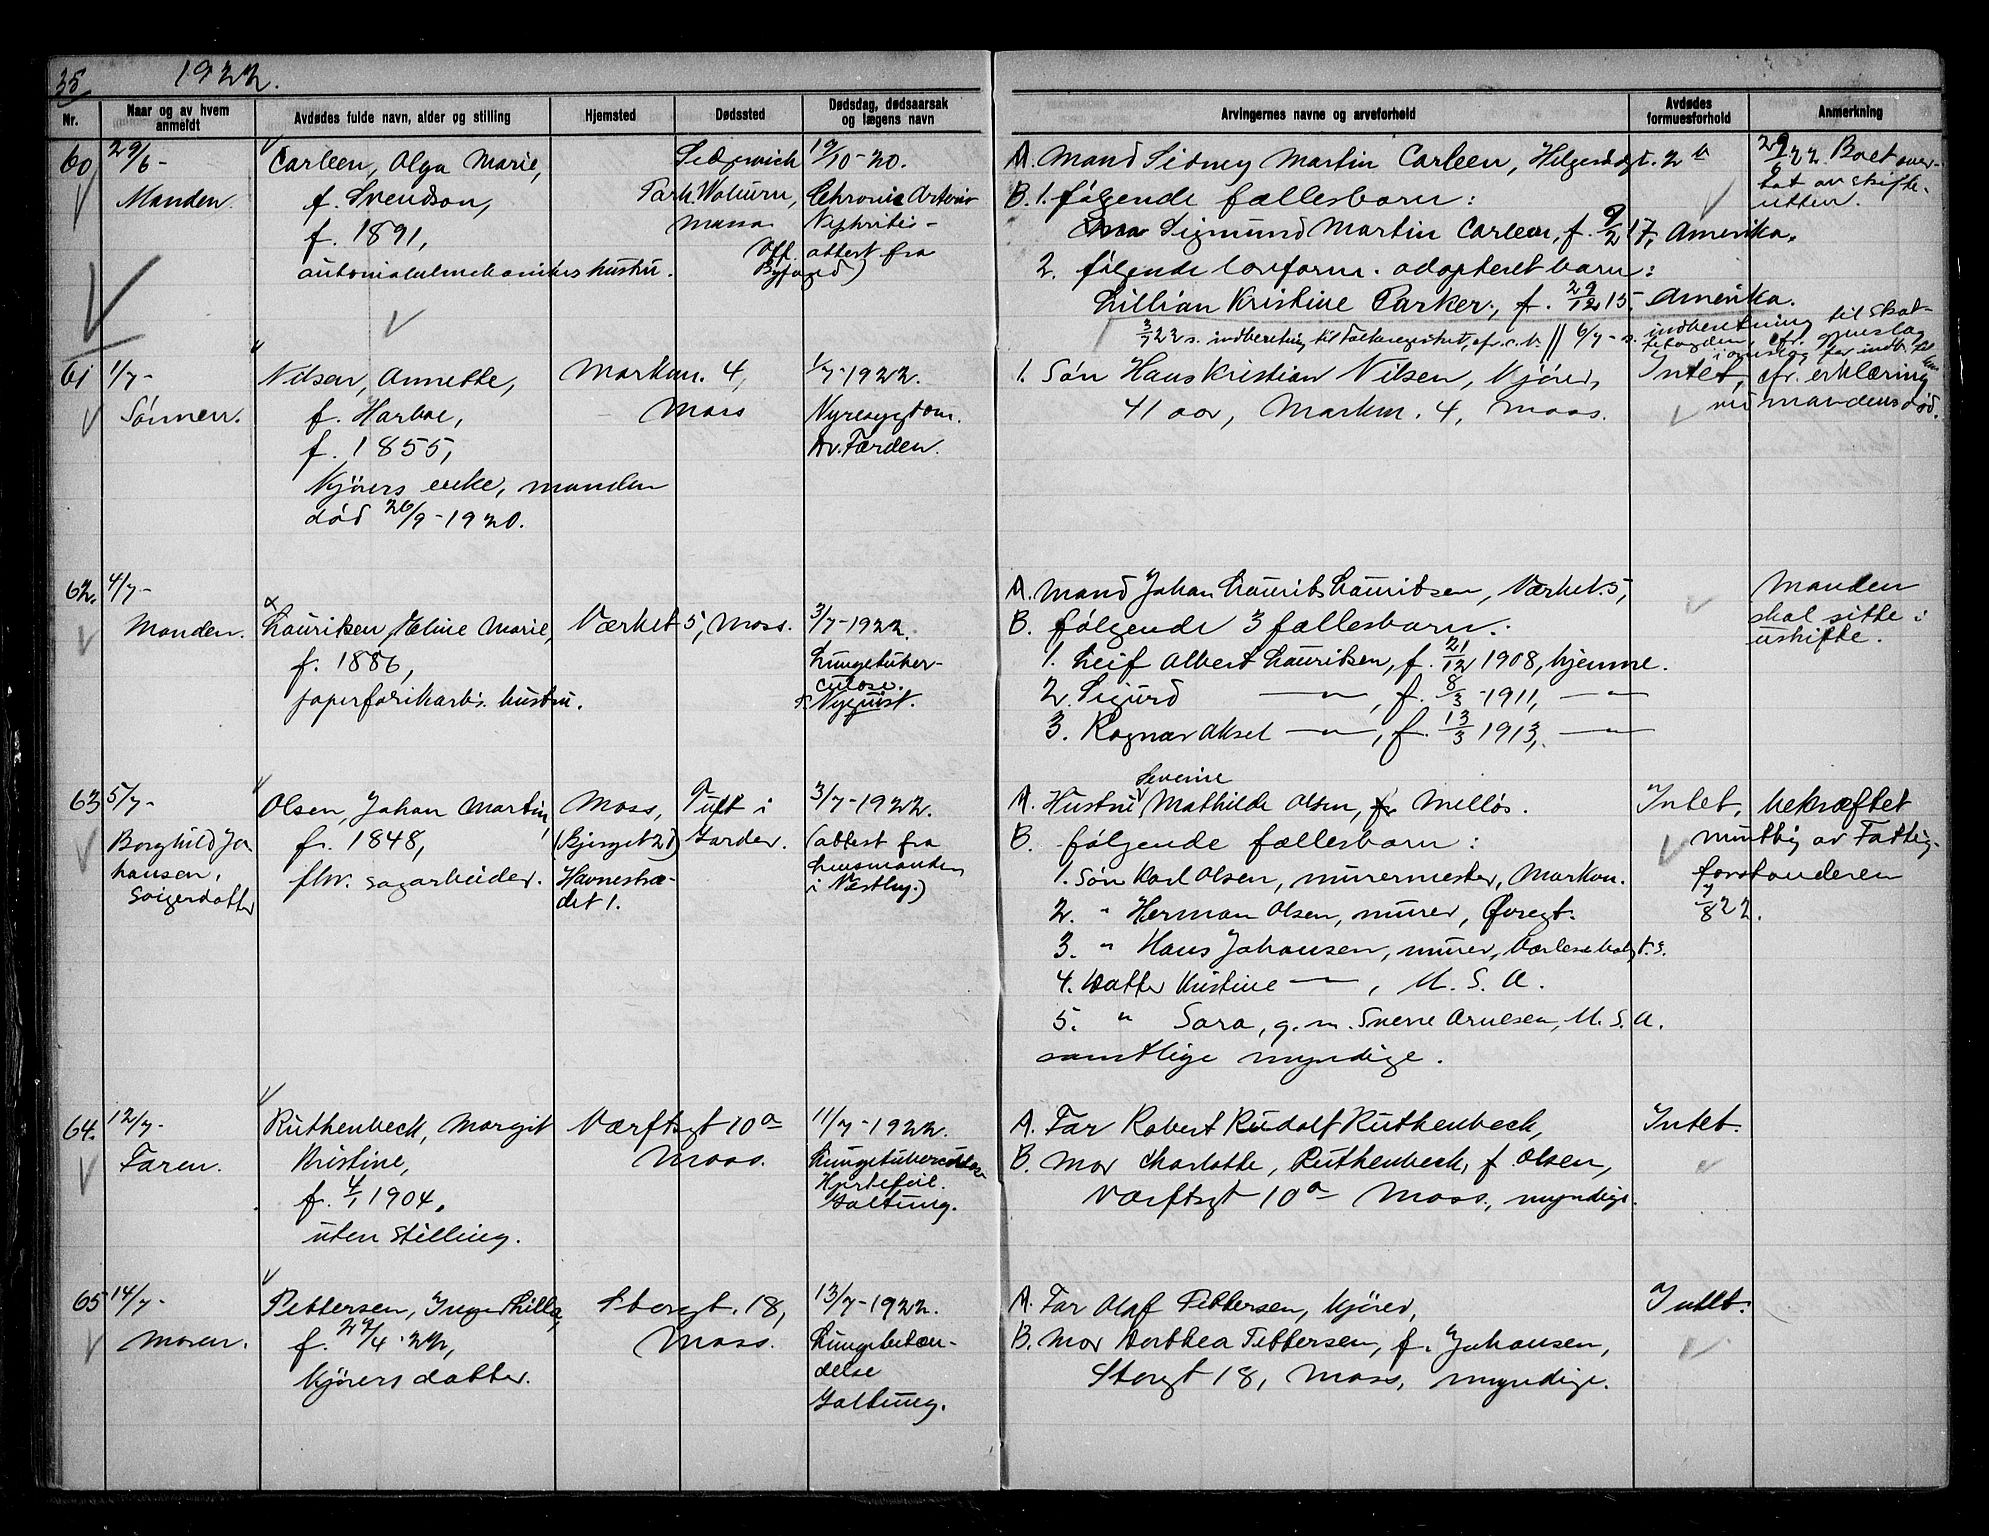 35 1922.
Nr.
Naar og av hvem anmeldt
Avdødes fulde navn, alder og stilling
Hjemsted
Dødssted
Dødsdag, dødsaarsak og lægens navn
Arvingernes navne og arveforhold
Avdødes formuesforhold
Anmerkning
60 29/6-
Manden.
Carleen, Olga Marie,
f. Svendson,
f. 1891,
hustru.
Park, Woburn,
Massa
19/10-20.
Chronic
Nephritis-
attest fra
Byfogd)
A. Mand Sidney Martin Carleen, Helgerødgt. 2 b
B. 1. følgende fællesbarn:
Sigmund Martin Carleen, f. 9/2 17, Amerika.
2. følgende lovform. adopteret barn:
Lillian Kristine Parker, f. 29/12 15. Amerika.
3/7 22 s. indberetning til
6/7 - s. indberetning til skat-
29/6 22 Boet over-
tat av skifte-
retten.
61 1/7-
Sønnen.
Nilsen, Annette,
f. Harboe,
f. 1855,
Kjørers enke, manden
død 26/9-1920.
Markvn. 4,
Moss
1/7-1922.
Nyresygdom.
Dr. Færden.
1. Søn Hans Kristian Nilsen, Kjører,
41 aar, Markvn. 4, Moss.
Intet, cfr. erklæring
ved mandens død.
62. 4/7-
Manden.
Lauritsen, Eline Marie,
f. 1886,
papirfabrikarb. hustru.
Værket 5, Moss.
3/7-1922.
Lungetuber-
culose.
Nyquist.
A. Mand Johan Laurits Lauritsen, Værket 5,
B. følgende 3 fællesbarn:
1. Leif Albert Lauritsen, f. 21/12 1908, hjemme.
2. Sigurd —"—, f. 8/3 -1911, —"—
3. Ragnar Aksel —"—, f. 13/3 1913, —"—
Manden
skal sitte i
uskifte.
63 5/7-
Borghild Jo
hansen,
Svigerdatter
Olsen, Johan Martin,
f. 1848,
fhv. sagarbeider.
Moss,
Havnestræ-
det 1.
Tuft i
Garder.
3/7-1922.
(attest fra
Lensmanden
i Vestby.)
A. Hustru Severine Mathilde Olsen, Melløs.
B. følgende fællesbarn:
1. Søn Karl Olsen, murermester, Markvn.
2. " Herman Olsen, murer, Øvregt.
3. " Hans Johansen, murer,
4. Datter Kristine —"—, U. S. A.
5. " Sara, g. m. Sverre Arnesen, U. S. A.
samtlige myndige.
Intet, bekræftet
muntlig av Fattig-
forstanderen
7/8 22.
64. 12/7-
Faren.
Ruthenbeck, Margit
Kristine,
f. 4/1 1904,
uten stilling.
Værftsgt 10a
Moss.
11/7-1922.
Lungetuberculose
Hjertefeil.
Galtung.
A. Far Robert Rudolf Ruthenbeck,
B. Mor Charlotte, Ruthenbeck, f. Olsen,
Værftsgt 10a Moss, myndige.
Intet.
65 14/7-
Moren.
Pettersen, Inger Lilly,
f. 29/4-22,
Kjørers datter.
Storgt. 18,
Moss.
13/7-1922.
Lungebetæn-
delse
Galtung.
A. Far Olaf Pettersen, Kjører,
B. Mor Dorthea Pettersen, f. Johansen,
Storgt 18, Moss, myndige.
Intet.